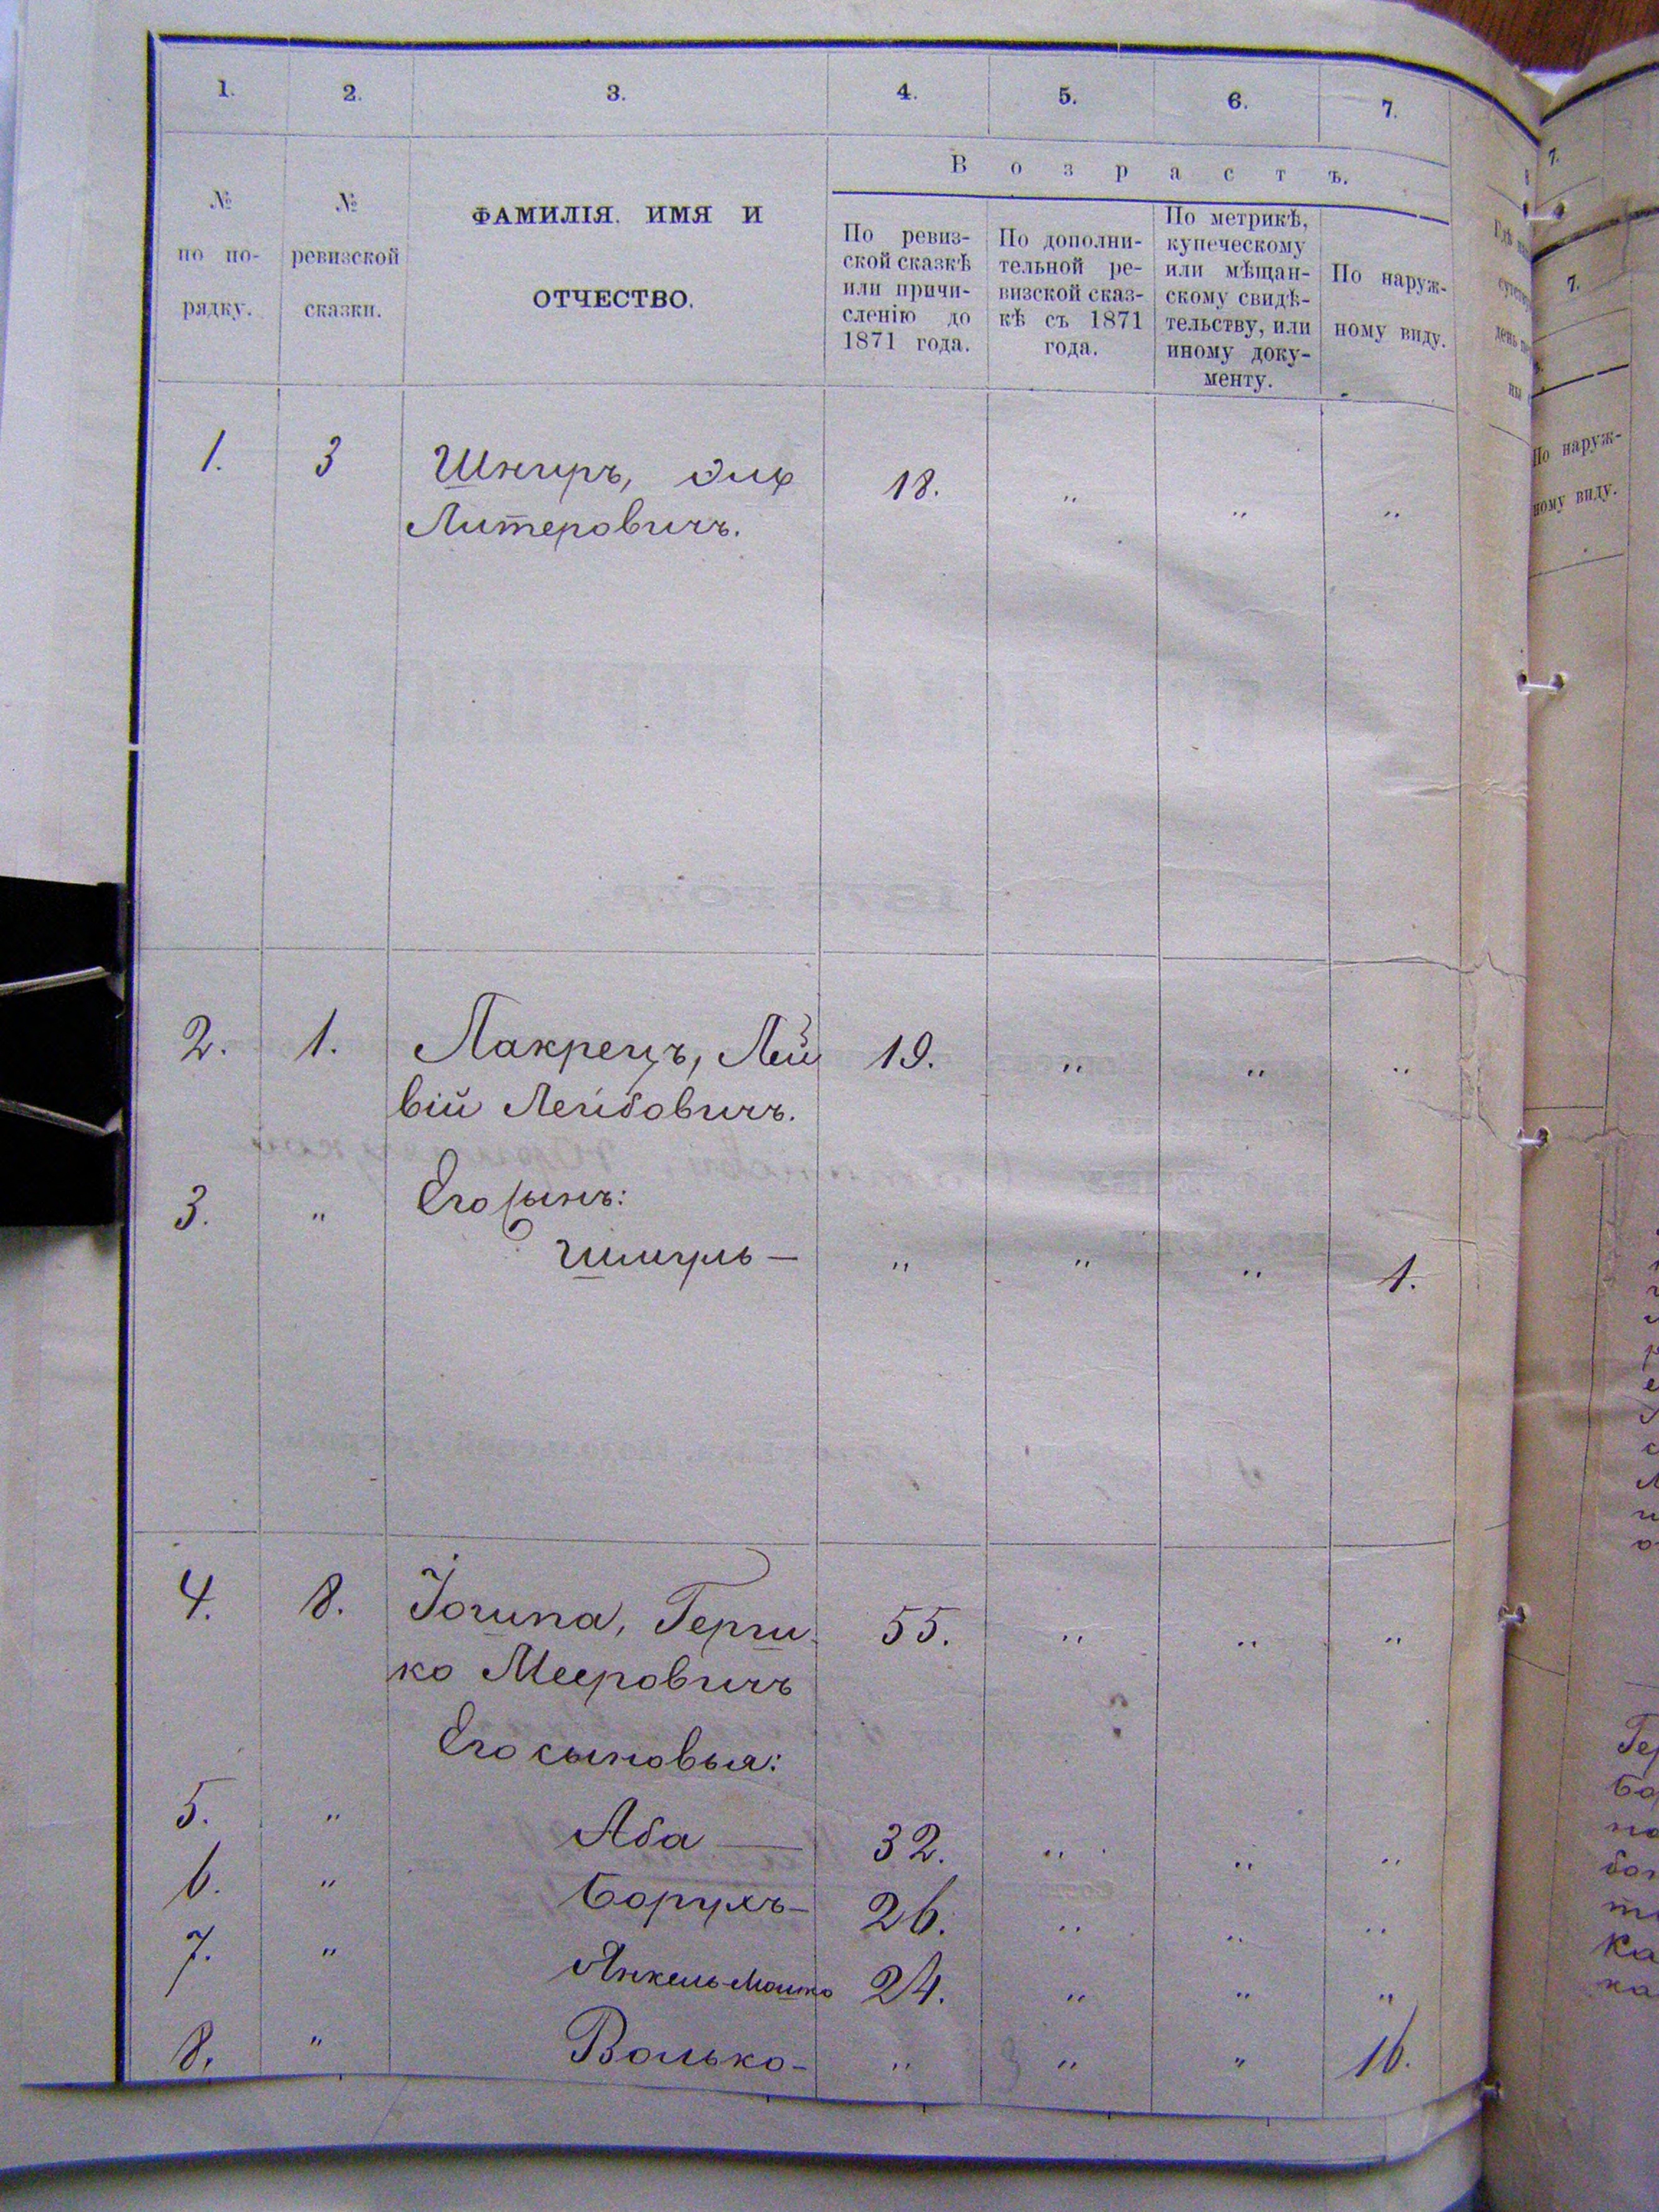 1. 2. 3. 4. 5. 6. 7.
В о з р а с т ъ.
№ по по-рядку.
№ ревизской сказки.
ФАМИЛІЯ. ИМЯ И
ОТЧЕСТВО.
По ревиз-
ской сказкѣ
или причи-
сленію до
1871 года.
По дополни-
тельной ре-
визской сказ-
кѣ съ 1871
года.
По метрикѣ,
купеческому
или мѣщан-
скому свидѣ-
тельству, или
иному доку-
менту.
По наруж-
ному виду.
1. 3 Шниръ, 18. " " "
Литеровичъ.
2. 1. Лакрецъ, Лей 19. " " "
вій Лейбовичъ.
3. " Его сынъ:
Шмуль — " " " 1.
4. 8. Іошпа, Герш- 55. " " "
ко Мееровичъ
Его сыновья:
5. " Аба — 32. " " "
6. " Борухъ- 26. " " "
7. " Янкель-Мошко 24. " " "
8. " Волько- " " " 16.
7.
7.
По наруж-
ному виду.